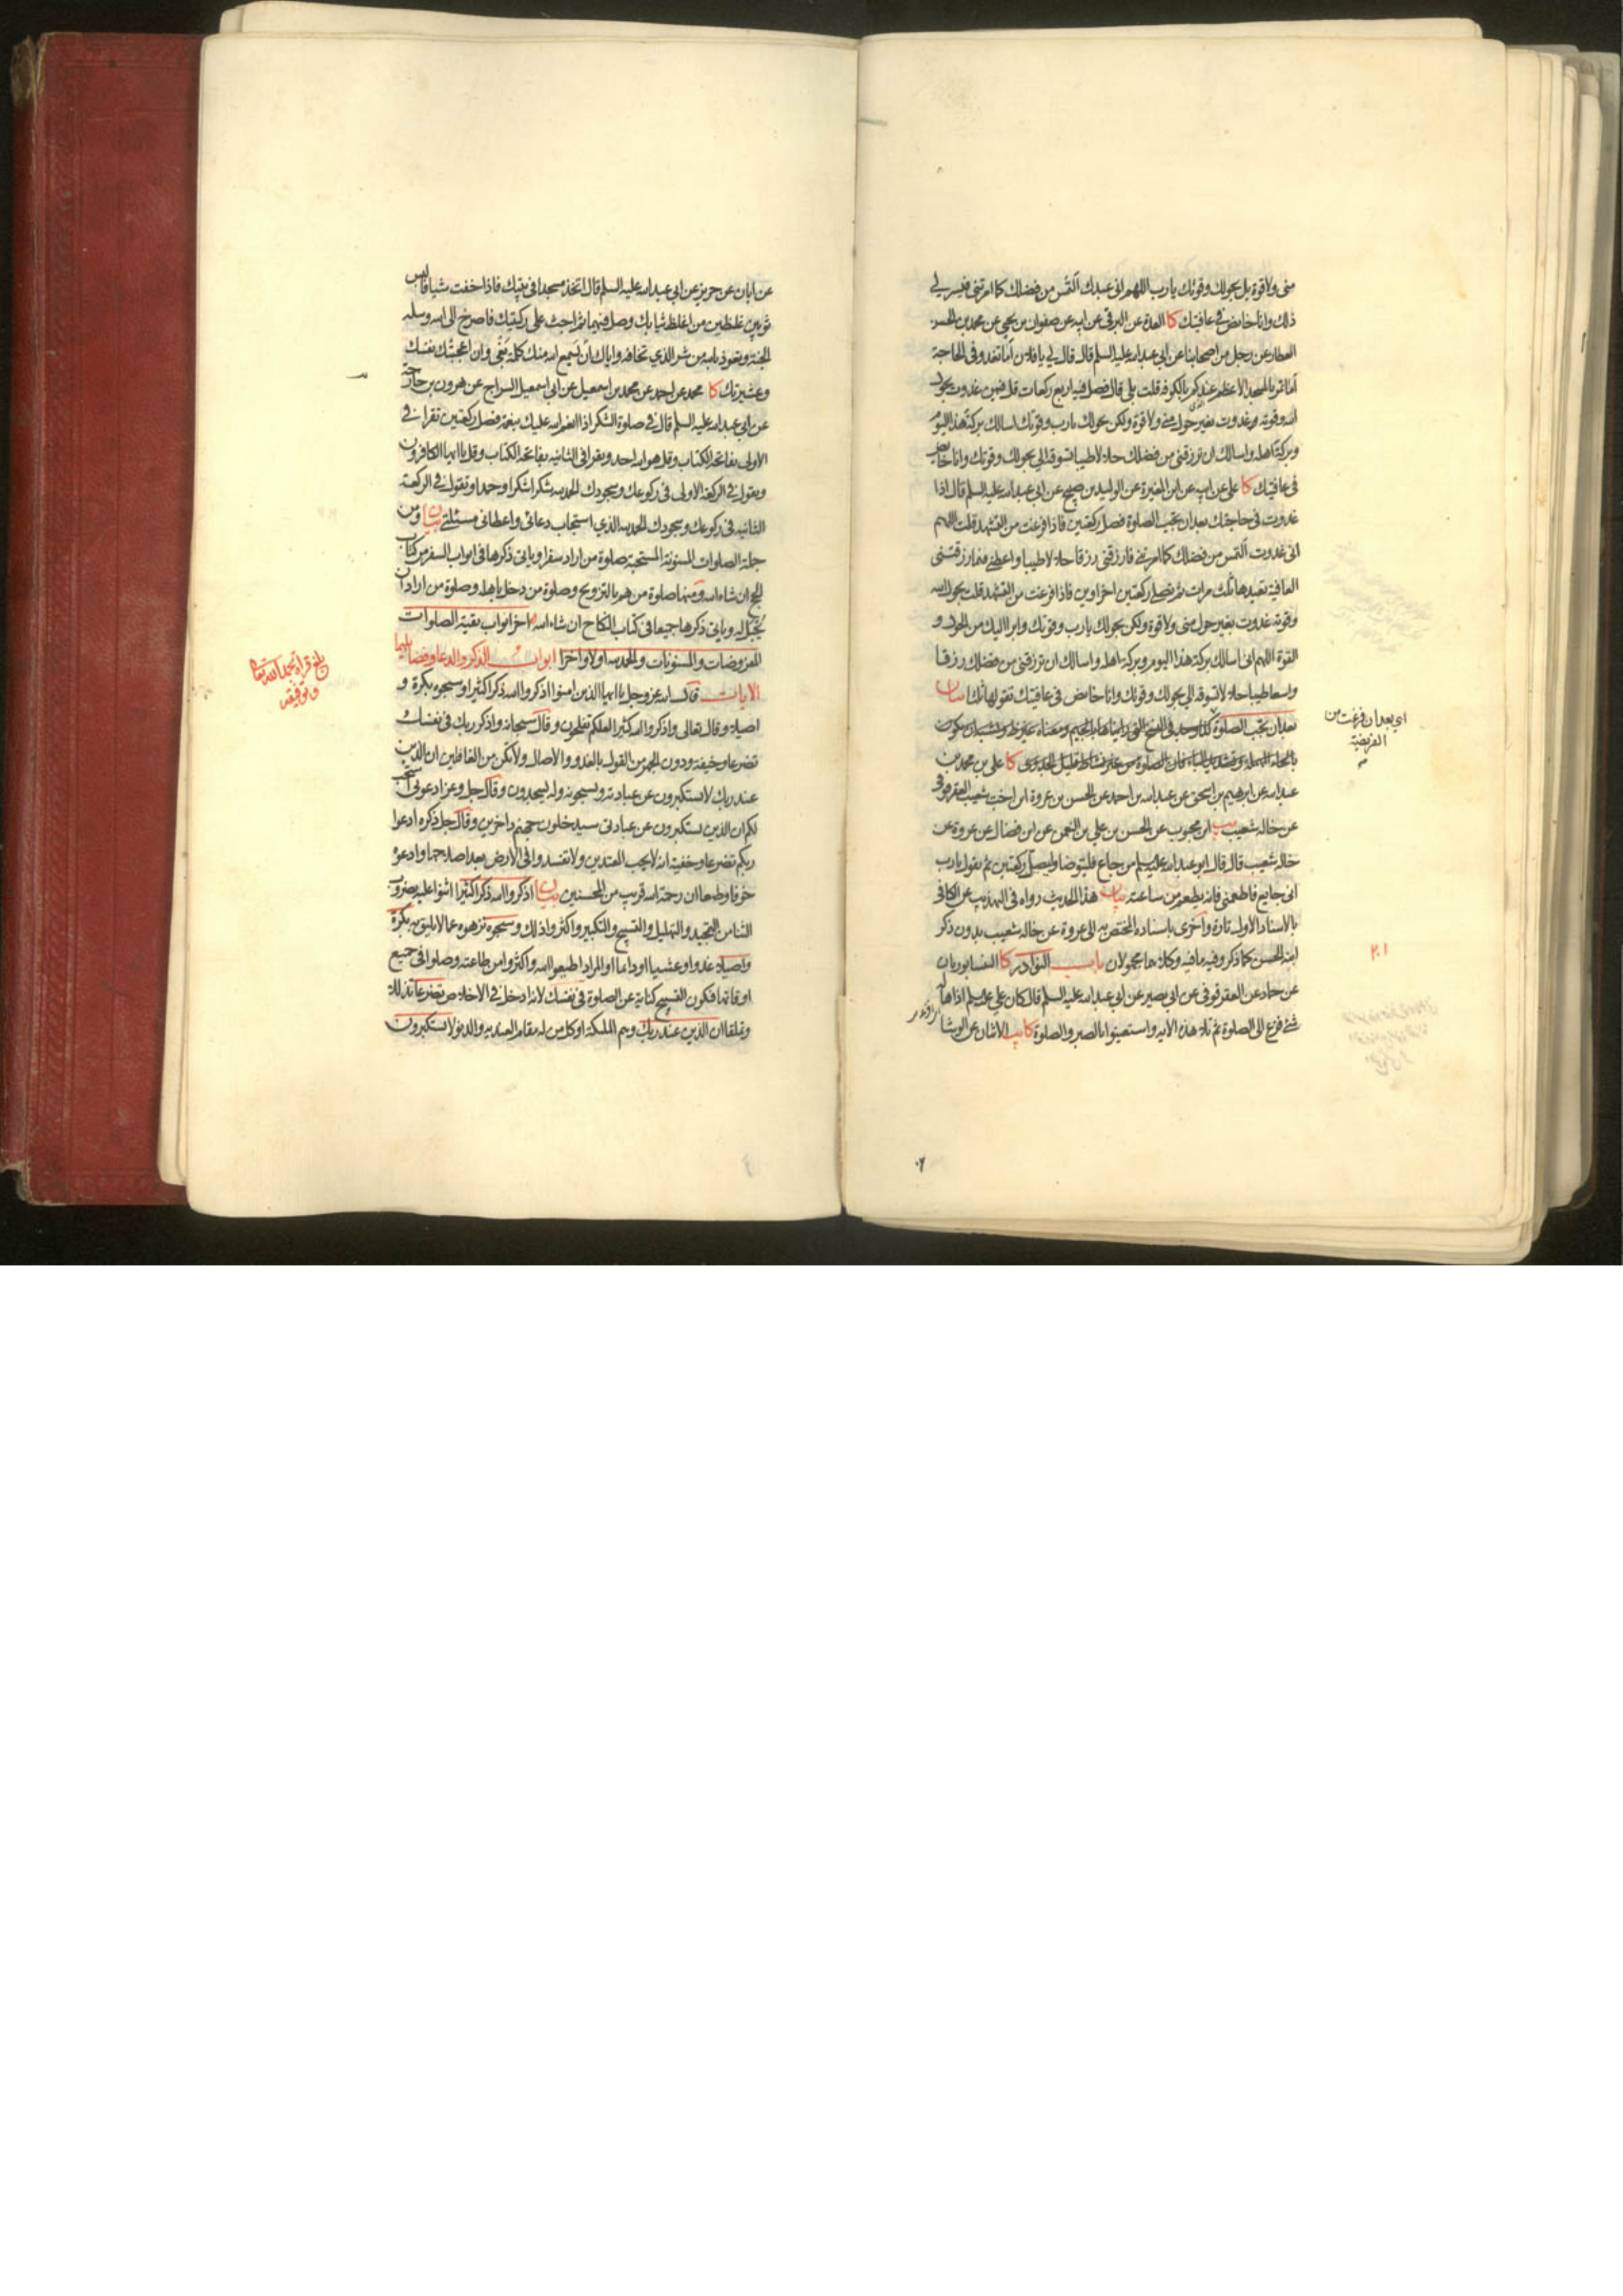 منى ولا قوة بل بحولك وقوتك يا رب اللهم انى عبدك التمس من فضلك كما امرتنى فيسر لي
ذلك وانا خافض في عافيتك كا العدة عن البرقي عن ابيه عن صفوان بن يحيى عن محمد بن الحسن
العطار عن رجل من اصحابنا عن ابي عبد الله عليه السلم قال قال لي يا فلان أما تغدو في الحاجة
أما تمر بالمسجد الاعظم عندكم بالكوفه قلت بلى قال فصل فيه اربع ركعات قل فيهن غدوت بحول
الله وقوته غدوت بغير حول مني ولا قوة ولكن بحولك يا رب وقوتك اسالك بركة هذا اليوم
وبركة اهله واسالك ان ترزقني من فضلك حلالا طيبا تسوقه الي بحولك وقوتك وانا خافض
في عافيتك كا علي عن ابيه عن ابن المغيرة عن الوليد بن صبيح عن ابي عبد الله عليه السلم قال اذا
غدوت في حاجتك بعد ان تجب الصلوة فصل ركعتين فاذا فرغت من التشهد قلت اللهم
انى غدوت التمس من فضلك كما امرتني فارزقني رزقا حلالا طيبا واعطني فيما رزقتني
العافية تعيدها ثلث مرات ثم تصلي ركعتين اخراوين فاذا فرغت من التشهد قلت بحول الله
وقوته غدوت بغير حول منى ولا قوة ولكن بحولك يا رب وقوتك وابرا اليك من الحول و
القوة اللهم انى اسالك بركة هذا اليوم وبركة اهله واسالك ان ترزقني من فضلك رزقا
واسعا طيبا حلالا تسوقه الي بحولك وقوتك وانا خافض في عافيتك تقولها ثلثا بيان
بعد ان تجب الصلوة
كا علي بن محمد بن
عبد الله عن ابرهيم بن اسحق عن عبد الله بن احمد عن الحسن بن عروة ابن اخت شعيب العقرقوفي
عن خاله شعيب يب ابن محبوب عن الحسن بن علي بن النعمن عن ابن فضال عن عروة عن
خاله شعيب قال قال ابو عبد الله عليه السلم من جاع فليتوضا وليصل ركعتين ثم يقول يا رب
اني جايع فاطعمني فانه يطعم من ساعته بيان هذا الحديث رواه في التهذيب عن الكافي
بالاسناد الاول تارة واخرى باسناده المختص به الى عروة عن خاله شعيب بدون ذكر
ابنه الحسن كما ذكر وفيه ما فيه وكلاهما مجهولان باب النوادر كا النيسابوريان
عن حماد عن العقرقوفي عن ابي بصير عن ابي عبد الله عليه السلم قال كان علي عليه السلم اذا هاله
شئ فزع الى الصلوة ثم تلا هذه الايه واستعينوا بالصبر والصلوة كا يب الاثنان عن الوشا
اي بعد ان فرغت من
الفريضة
٢٠١
عن ابان عن حريز عن ابي عبد الله عليه السلم قال اتخذ مسجدا في بيتك فاذا خفت شيا فالبس
ثوبين غليظين من اغلظ ثيابك وصل فيهما ثم اجث على ركبتيك فاصرخ الى الله وسله
الجنة وتعوذ بالله من شر الذي تخافه واياك ان يسمع الله منك كلمة بغي وان اعجبتك نفسك
وعشيرتك كا محمد عن احمد عن محمد بن اسمعيل عن ابي اسمعيل السراج عن هرون بن خارجة
عن ابي عبد الله عليه السلم قال في صلوة الشكر اذا انعم الله عليك بنعمة فصل ركعتين تقرا في
الاولى بفاتحة الكتاب وقل هو الله احد وتقرا في الثانيه بفاتحة الكتاب وقل يا ايها الكافرون
وتقول في الركعة الاولى في ركوعك وسجودك الحمد لله شكرا شكرا وحمدا وتقول في الركعة
الثانيه في ركوعك وسجودك الحمد لله الذي استجاب دعائي واعطاني مسئلتي بيان ومن
جملة الصلوات المسنونة المستحبة صلوة من اراد سفرا وياتي ذكرها في ابواب السفر من كتاب
الحج ان شاء الله ومنها صلوة من هم بالتزويج وصلوة من دخل باهله وصلوة من اراد ان
يحبل له وياتي ذكرها جميعا في كتاب النكاح ان شاء الله اخر ابواب بقية الصلوات
المفروضات والمسنونات والحمد لله اولا واخرا ابواب الذكر والدعا وفضايلهما
الايات قال الله عز وجل يا ايها الذين امنوا اذكروا الله ذكرا كثيرا وسبحوه بكرة و
اصيلا وقال تعالى واذكروا الله كثيرا لعلكم تفلحون وقال سبحانه واذكر ربك في نفسك
تضرعا وخيفة ودون الجهر من القول بالغدو والاصال ولا تكن من الغافلين ان الذين
عند ربك لا يستكبرون عن عبادته ويسبحونه وله يسجدون وقال جل وعز ادعوني استجب
لكم ان الذين يستكبرون عن عبادتي سيدخلون جهنم داخرين وقال جل ذكره ادعوا
ربكم تضرعا وخفية انه لا يحب المعتدين ولا تفسدوا في الارض بعد اصلاحها وادعوه
خوفا وطمعا ان رحمة الله قريب من المحسنين بيان اذكروا الله ذكرا كثيرا اثنوا عليه بضروب
الثنا من التمجيد والتهليل والتسبيح والتكبير واكثروا ذلك وسبحوه نزهوه عما لا يليق به بكرة
واصيلا غدوا وعشيا او دايما او المراد اطيعوا الله واكثروا من طاعته وصلوا في جميع
اوقاتها فكون التسبيح كناية عن الصلوة في نفسك لانه ادخل في الاخلاص تضرعا تذللا
وتملقا ان الذين عند ربك وهم الملئكة او كل من له مقام العنديه والدنو لا يستكبرون
بلغ قراءة بحمد الله تعالى
وتوفيقه